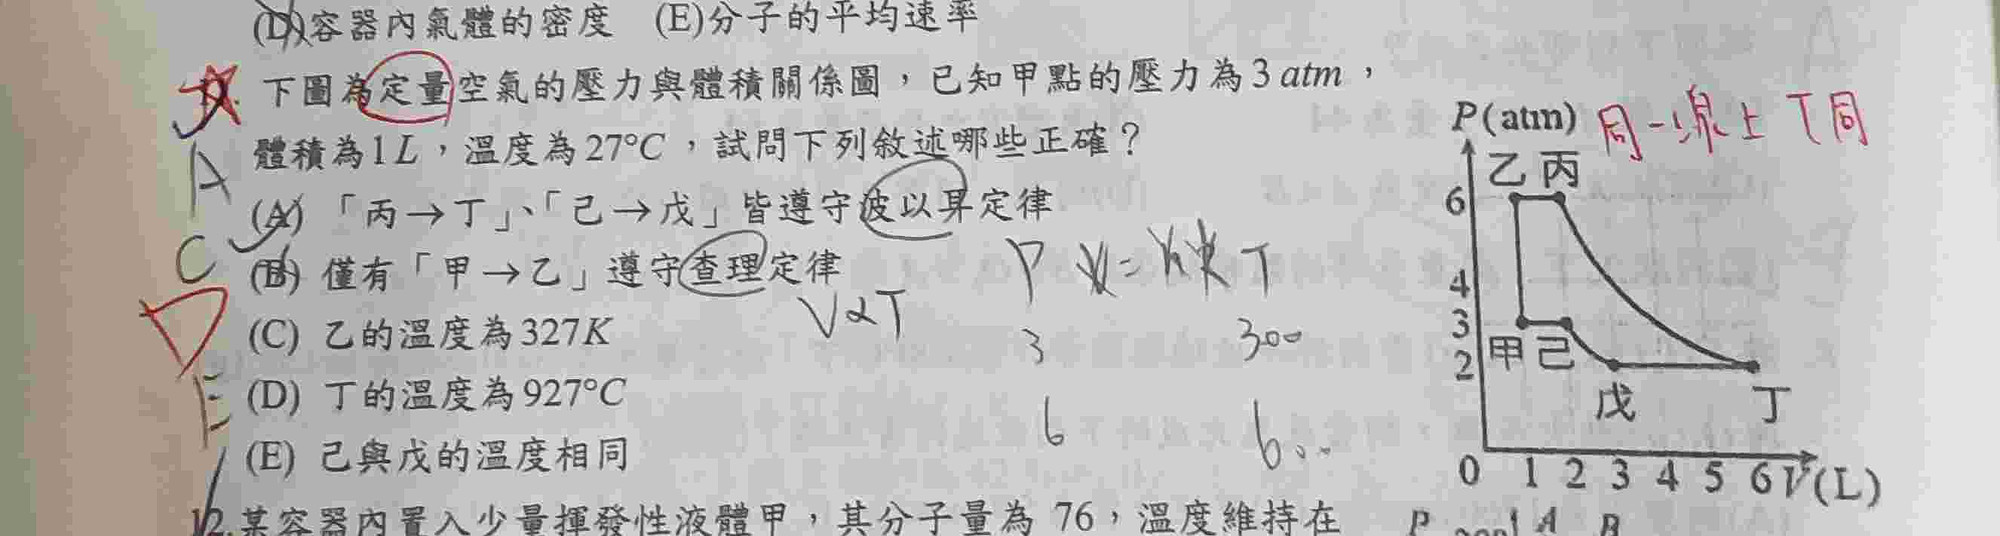 (D)容器內氣體的密度 (E)分子的平均速率
下圖為定量空氣的壓力與體積關係圖，已知甲點的壓力為3 atm，
體積為1L，溫度為27°C，試問下列敘述哪些正確？
(A) 「丙→丁」、「己→戊」皆遵守波以耳定律
(B) 僅有「甲→乙」遵守查理定律
(C) 乙的溫度為327K
(D) 丁的溫度為927°C
(E) 己與戊的溫度相同
12.某容器內置入少量揮發性液體甲，其分子量為 76，溫度維持在
A
C
D
E
V∝T
T
3 300
6 600
P(atm) 同一線上 T同
乙 丙
6
4
3
甲 己
2
戊 丁
0 1 2 3 4 5 6 V(L)
P A B